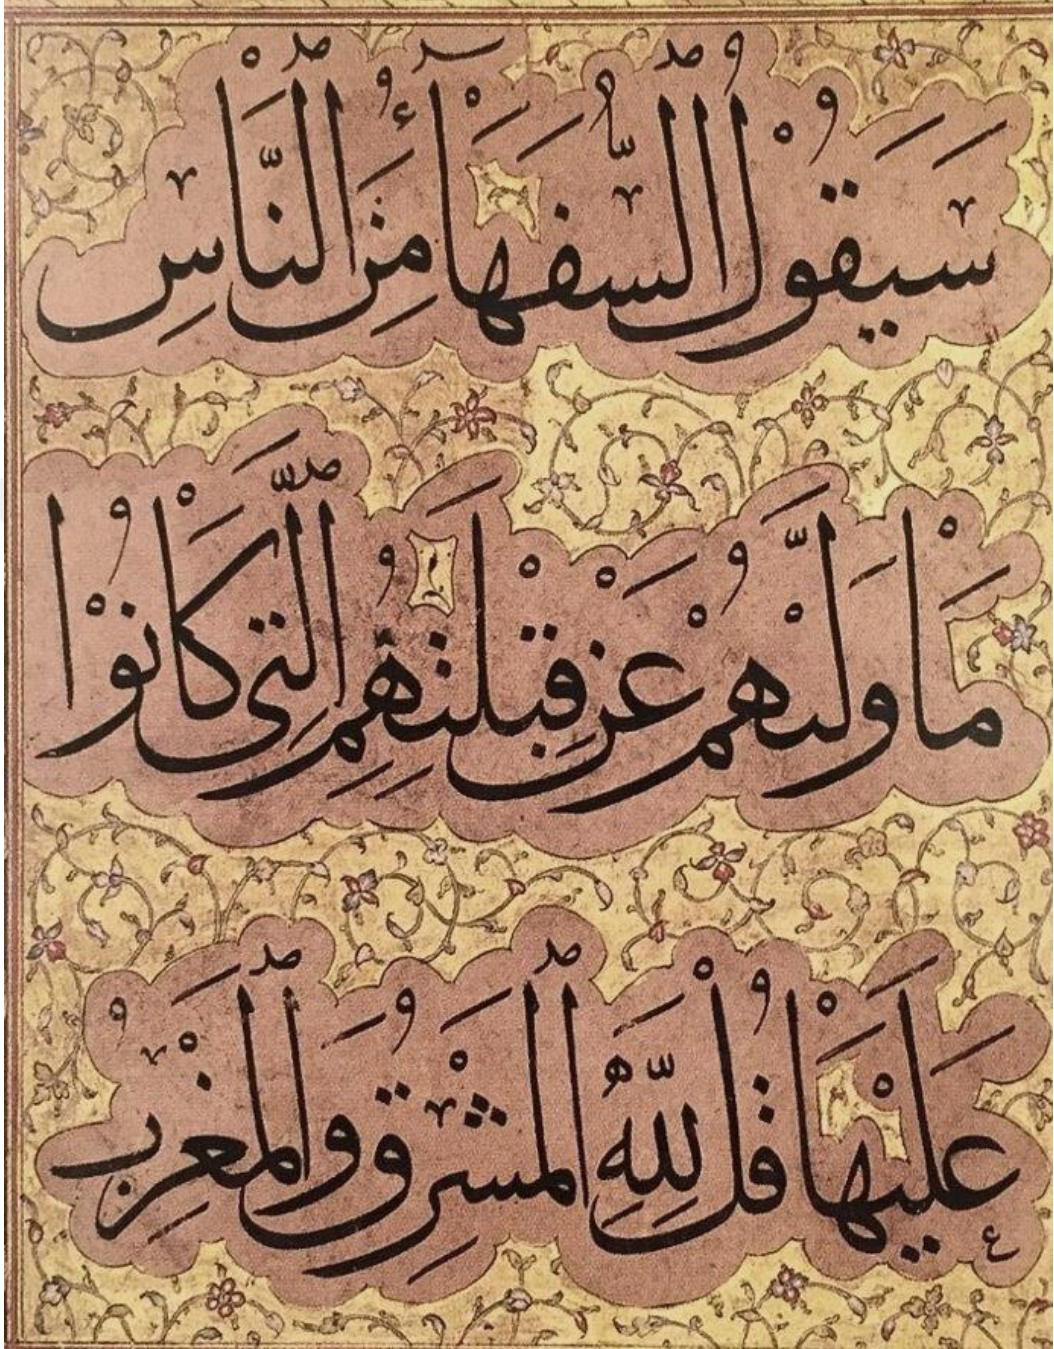 سَيَقُولُ ٱلسُّفَهَآءُ مِنَ ٱلنَّاسِ
مَا وَلَّىٰهُمْ عَنْ قِبْلَتِهِمُ ٱلَّتِى كَانُوْا
عَلَيْهَا قُلْ لِلّٰهِ ٱلْمَشْرِقُ وَٱلْمَغْرِبُ